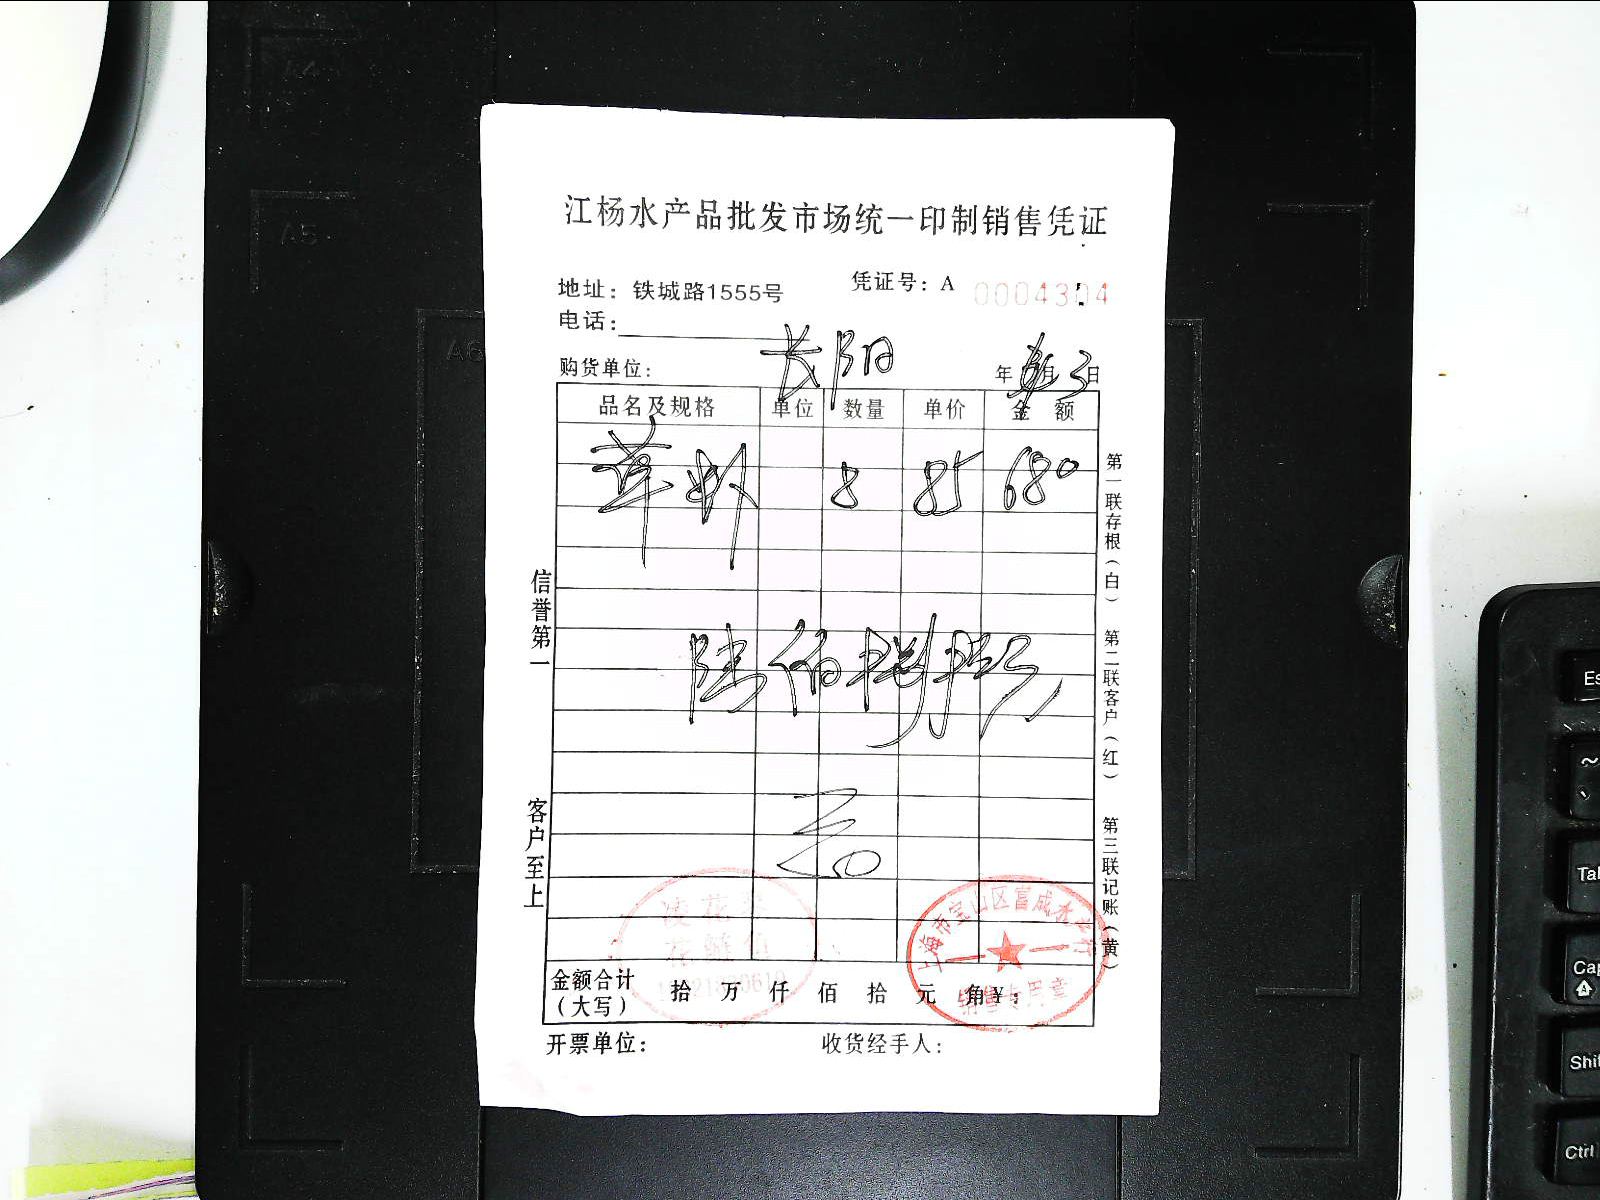 江杨水产品批发市场统一印制销售凭证
地址：铁城路1555号
凭证号：A 0004304
电话：
购货单位：长阳
年 月 3日
品名及规格 单位 数量 单价 金额
草虾 8 85 680
陆佰捌拾元
信誉第一
客户至上
第一联存根（白）
第二联客户（红）
第三联记账（黄）
凌花
花鲢鱼
上海市宝山区富成水产行
销售专用章
金额合计（大写） 拾 万 仟 佰 拾 元 角 ¥：
开票单位：
收货经手人：
A4
A5
A6
Esc
Tab
Cap
Shif
Ctrl